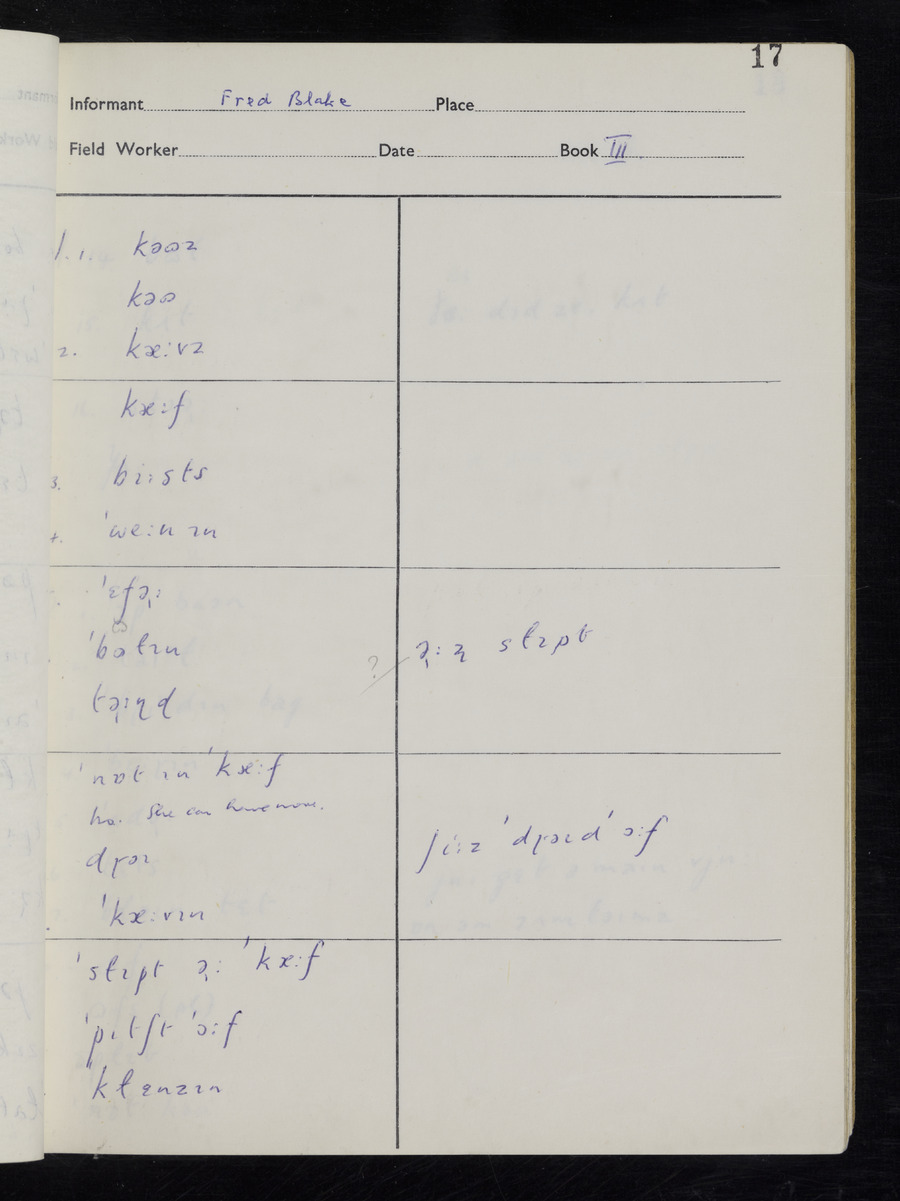 17
Informant Fred Blake Place
Field Worker Date Book III
1. 1. kəʊz
kəʊ
2. kæ:vz
kæ:f
3. bi:sts
4. ˈwe:nɪn
ˈɛfəɻ:
ˈbəlɪn
? əɻ:z slɪpt
ˈnɒt ɪn ˈkæ:f
No. She can have more.
dɻəɪ
ʃi:z ˈdɻəɪd ˈɔ:f
ˈkæ:vɪn
ˈslɪpt əɻ: ˈkæ:f
ˈpɪtʃt ˈɔ:f
ˈklɛnzɪn